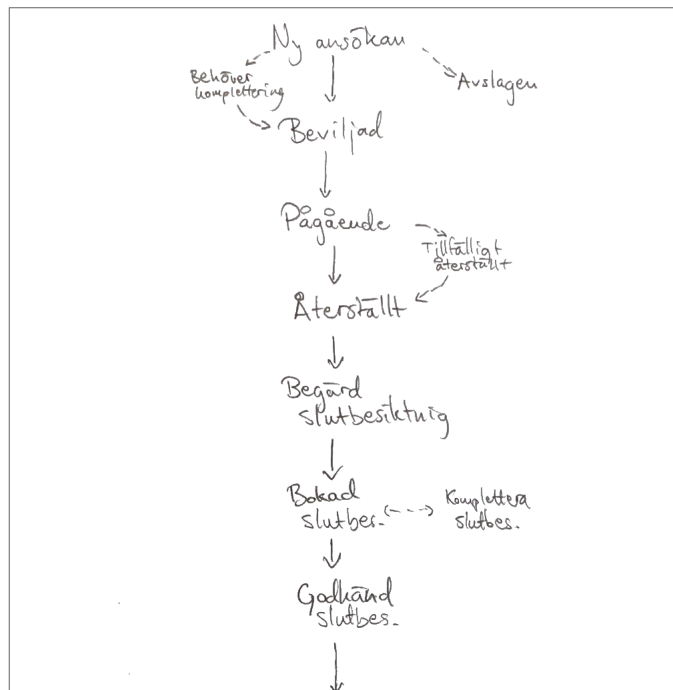 Ny ansökan
Behöver
komplettering
Avslagen
Beviljad
Pågående
Tillfälligt
återställt
Återställt
Begärd
slutbesiktnig
Bokad
slutbes.
Komplettera
slutbes.
Godkänd
slutbes.